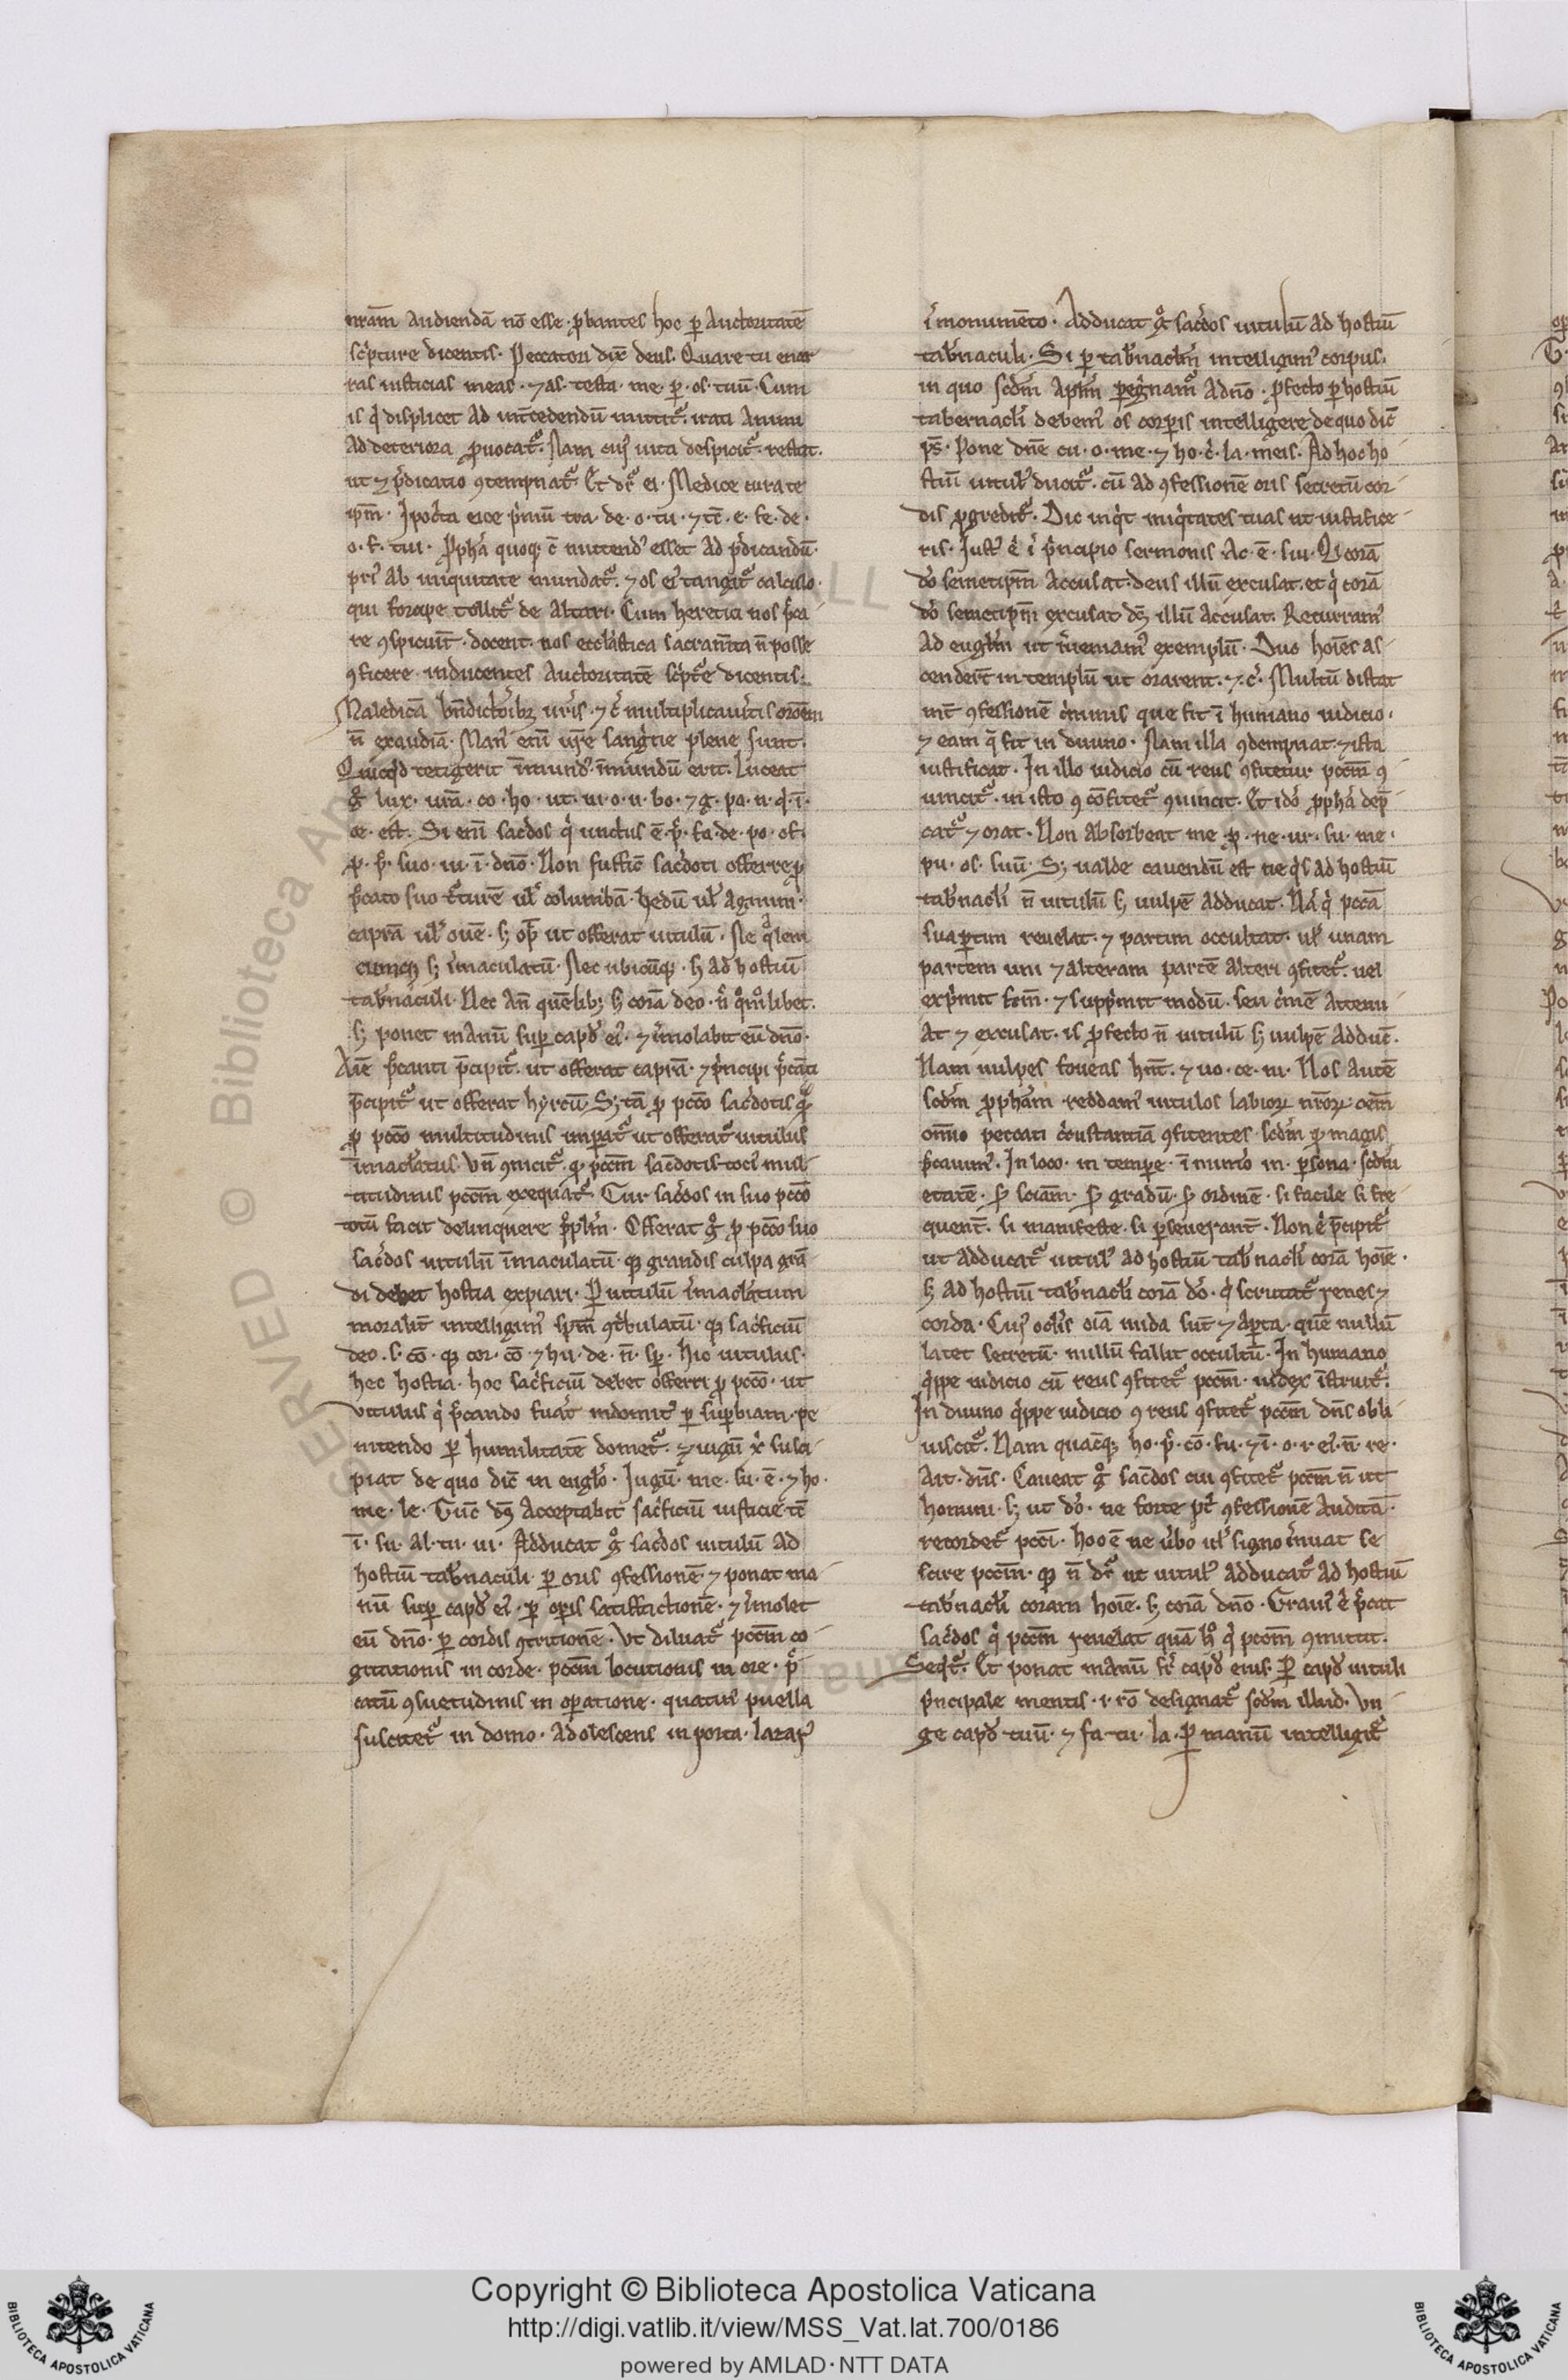 nr̄am audiendā nō esse · ꝓbantes hoc ꝑ auctoritatē
sc̓pture dicentis. Peccatori dix̄ deus. Quare tu enar
ras iusticias meas · ⁊ as · testa · me · ꝑ · os · tuū · Cum
is q̓ displicet ad int̄cedendū mittit᷑ · irati animi
ad deteriora ꝓuocat᷑. Nam cuiꝰ uita despicit᷑ · restat.
ut ⁊ p̄dicatio ꝯtempnat᷑. Et dr̄ ei · Medice cura te
ip̄m · Ipoc̓ta eice p̓mū tra · de · o · tu · ⁊ tc̄ · e · fe · de ·
o · f · tui · Ꝓph̓a quoqꝫ
pri᷒ ab iniquitate mundat᷑ · ⁊ os eiꝰ tangit᷑ calculo ·
qui forcipe tollit᷑ de altari · Cum heretici nos p̄ca
re ꝯspiciūt · docent · nos eccl̓astica sacram̄ta n̄ posse
ꝯficere · inducentes auctoritatē sc̓pt᷑e dicentis ·
Maledicā bn̄dictōibꝫ ur̄is · ⁊ c̄ multiplicaueritis oroēm
n̄ exaudiā · Manꝰ eni᷑ ur̄e sanguīe plene sunt.
Quicq̓d tetigerit īmundꝰ īmundū erit. Luceat
g̊ lux · ur̄a · co · ho · ut · ui · o · u · bo · ⁊ g · pa · u · q̓ · ī ·
ce · est. Si eni᷑ sac̓dos q̓ unctus ē · p̄ · fa · de · po · of ·
ꝓ · p̄ · suo · ui · ī · dn̄o · Non suffic̄ sac̓doti offerre ꝓ
p̄cato suo t᷑turē ul̓ columbā · hedū ul̓ agnum ·
caprā ul̓ ouē · ꜱꝫ op̄ ut offerat uitulū · Nec q̓lem
cumqꝫ sꝫ īmaculatū · Nec ubicūqꝫ · sꝫ ad hostiū
tab̓naculi · Nec an̄ quēlibꝫ sꝫ corā deo · n̄ qͦmͦlibet.
sꝫ ponet manū suꝑ capd̓ eiꝰ · ⁊ īmolabit eū dn̄o ·
p̄cipit᷑ ut offerat hyrcū · Sꝫ tā ꝓ pccō sac̓dotis q̄
ꝓ pccō multitudinis imp̄at᷑ ut offerat᷑ uitulus
īmac̓latus · Un̄ ꝯuīcit᷑ · qꝫ pccm̄ sac̓dotis tociꝰ mul
titudinis pccm̄ exequat᷑ · Cur sac̓dos in suo pccō
totū facit delinquere p̄pl̓m · Offerat g̊ ꝓ pccō suo
sac̓dos uitulū īmaculatū · qꝫ grandis culpa grā
di debet hostia expiari · Per uitulū īmac̓latum
moralit̄ intelligimꝰ sp̄m ꝯt̓bulatū · qꝫ sac̓ficiū
deo · s · cō · qꝫ cor · cō · ⁊ hu · de · n̄ · sp̄ · hic uitulus ·
hec hostia · hoc sac̓ficiū debet offerri ꝓ pccō · ut
uitulus q̓ p̄cando fuāt indomitꝰ ꝑ suꝑbiam · pe
nitendo ꝑ humilitatē domet᷑ · ⁊ iugū x̄ susci
piat de quo dic̄ in eugl̓o · Iugū · me · su · ē · ⁊ ho ·
me · le · Tūc dꝰ acceptabit sac̓ficiū iusticie tc̄
ī · su · al · tu · ui · Adducat g̊ sac̓dos uitulū ad
hostiū tab̓naculi · ꝑ oris ꝯfessionē · ⁊ ponat ma
nū suꝑ capd̓ eiꝰ · ꝑ oꝑis satiffactionē · ⁊ īmolet
eū dn̄o · ꝑ cordis ꝯtritionē · Ut diluat᷑ pccm̄ co
gitationis in corde · pccm̄ locutionis in ore · p̄
catū ꝯsuetudinis in oꝑatione · quatinꝰ puella
suscitet᷑ in domo · adolescens in porta · lazarꝰ
ī monumēto · Adducat g̊ sac̓dos uitulū ad hostiū
tab̓naculi · Si ꝑ tab̓nac̓lm̄ intelligimꝰ corpus ·
in quo scdm̄ apl̓m ꝑeg̓namꝰ a dn̄o · ꝓfecto ꝑ hostiū
tabernacl̓i debemꝰ os corꝑis intelligere de quo dic̄
p̄s · Pone dn̄e cu · o · me · ⁊ ho · c̓ · la · meis · Ad hoc ho
stiū uitulꝰ ducit᷑ · cū ad ꝯfessionē oris secretū cor
dis ꝓgredit᷑ · Dic inq̓t iniq̓tates tuas ut iustifice
ris · Iustꝰ ē ī p̓ncipio sermonis · Ac · ē · sui · Qi corā
dō semetip̄m accusat · deus illū excusat · et q̓ corā
dō semetip̄m excusat dꝰ illū accusat · Recurramꝰ
ad eugl̓m ut īueniamꝰ exemplū · Duo hoīes as
cender̄t in templū ut orarent · ⁊ c̓ · Multū distat
int̄ ꝯfessionē c̓minis que fit ī humano iudicio ·
⁊ eam q̄ fit in diuino · Nam illa ꝯdempnat · ⁊ ista
iustificat · In illo iudicio cū reus ꝯfitetur pccm̄ ꝯ
uincit᷑ · in isto ꝯ cōfitet᷑ ꝯuincit · Et idō ꝓph̓a dep̄
cat᷑ ⁊ orat · Non absorbeat me ꝓ · ne · ur · su · me ·
pu · os · suū · Sꝫ ualde cauendū est ne q̓s ad hostiū
tab̓nacl̓i n̄ uitulū sꝫ uulpē adducat · Nā q̓ pccā
sua ꝑtim reuelat · ⁊ partim occultat · ul̓ unam
partem uni ⁊ alteram partē alteri ꝯfitet᷑ · uel
exp̓mit fcm̄ · ⁊ supp̓mit modū · seu c̓mē attenu
at ⁊ excusat · is ꝓfecto n̄ uitulū sꝫ uulpē adduc̄ ·
Nam uulpes foueas hn̄t · ⁊ uo · ce · ni · Nos autē
scdm̄ ꝓph̓am · reddamꝰ uitulos labioꝝ nr̄oꝝ · oēm
omnīo peccati c̓custantiā ꝯfitentes · scdm̄ qꝫ magis
p̄cauimꝰ · In loco · in tempe · ī numo in · ꝑsona · scdm̄
etatē · s̄ · sciam̄ · s̄ gradū · s̄ ordinē · si facile si fre
quent̄ · si manifeste · si ꝑseuerant̄ · Non ē p̄cipit᷑
ut adducat᷑ uitulꝰ ad hostiū tab̓nacl̓i corā hoīe ·
sꝫ ad hostiū tab̓nacl̓i corā dō · q̓ scrutat᷑ renes ⁊
corda · Cuiꝰ ocl̓is oīa nuda sūt ⁊ aꝑta · quē nullū
latet secretū · nullū fallit occultū · In humano
q̓ppe iudicio cū reus ꝯfitet᷑ pccm̄ · iudex īstruit᷑ ·
In diuino q̓ppe iudicio ꝯ reus ꝯfitet᷑ pccm̄ dn̄s obli
uiscit᷑ · Nam quacūqꝫ ho · p̄ · cō · fu · ⁊ ī · o · r · eiꝰ · n̄ · re ·
Ait · dn̄s · Caueat g̊ sac̓dos cui ꝯfitet᷑ pccm̄ n̄ ut
homini · sꝫ ut dō · ne forte pꝰt ꝯfessionē auditā ·
recordet᷑ pcci · hoc ē ne ūbo ul̓ signo īnuat se
scire pccm̄ · qꝫ n̄ dr̄ ut uitulꝰ adducat᷑ ad hostiū
tab̓nacl̓i coram hoīe · sꝫ corā dn̄o · Grauiꝰ ē p̄cat
sac̓dos q̓ pccm̄ reuelat quā hͦ q̓ pccm̄ ꝯmittit ·
Seqt᷑ · Et ponat manū sr̄ capd̓ eius · Per capd̓ uituli
p̓ncipale mentis · i · rō designat᷑ scdm̄ illud · Un
ge capd̓ tuū · ⁊ fa · tu · la · Per manū intelligit᷑
Copyright © Biblioteca Apostolica Vaticana
http://digi.vatlib.it/view/MSS_Vat.lat.700/0186
powered by AMLAD · NTT DATA